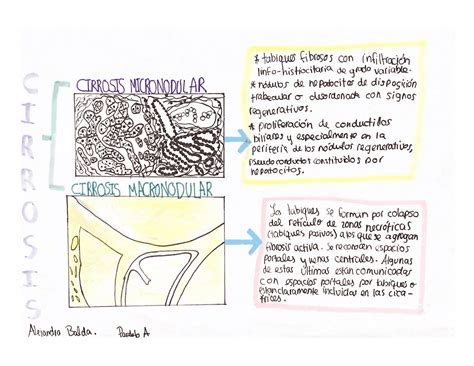 CIRROSIS
CIRROSIS MICRONODULAR
* tabiques fibrosos con infiltración
linfo-histiocitaria de grado variable.
* nódulos de hepatocitos de disposición
trabecular o desordenada con signos
regenerativos.
* proliferación de conductillos
biliares y especialmente en la
periferia de los nódulos regenerativos,
pseudo conductos constituidos por
hepatocitos.
CIRROSIS MACRONODULAR
Los tabiques se forman por colapso
del retículo de zonas necróticas
(tabiques pasivos) a los que se agregan
fibrosis activa. Se reconocen espacios
portales y venas centrales. Algunas
de estas últimas están comunicadas
con espacios portales por tabiques o
están claramente incluidas en las cica-
trices.
Alejandra Balda. Paralelo A